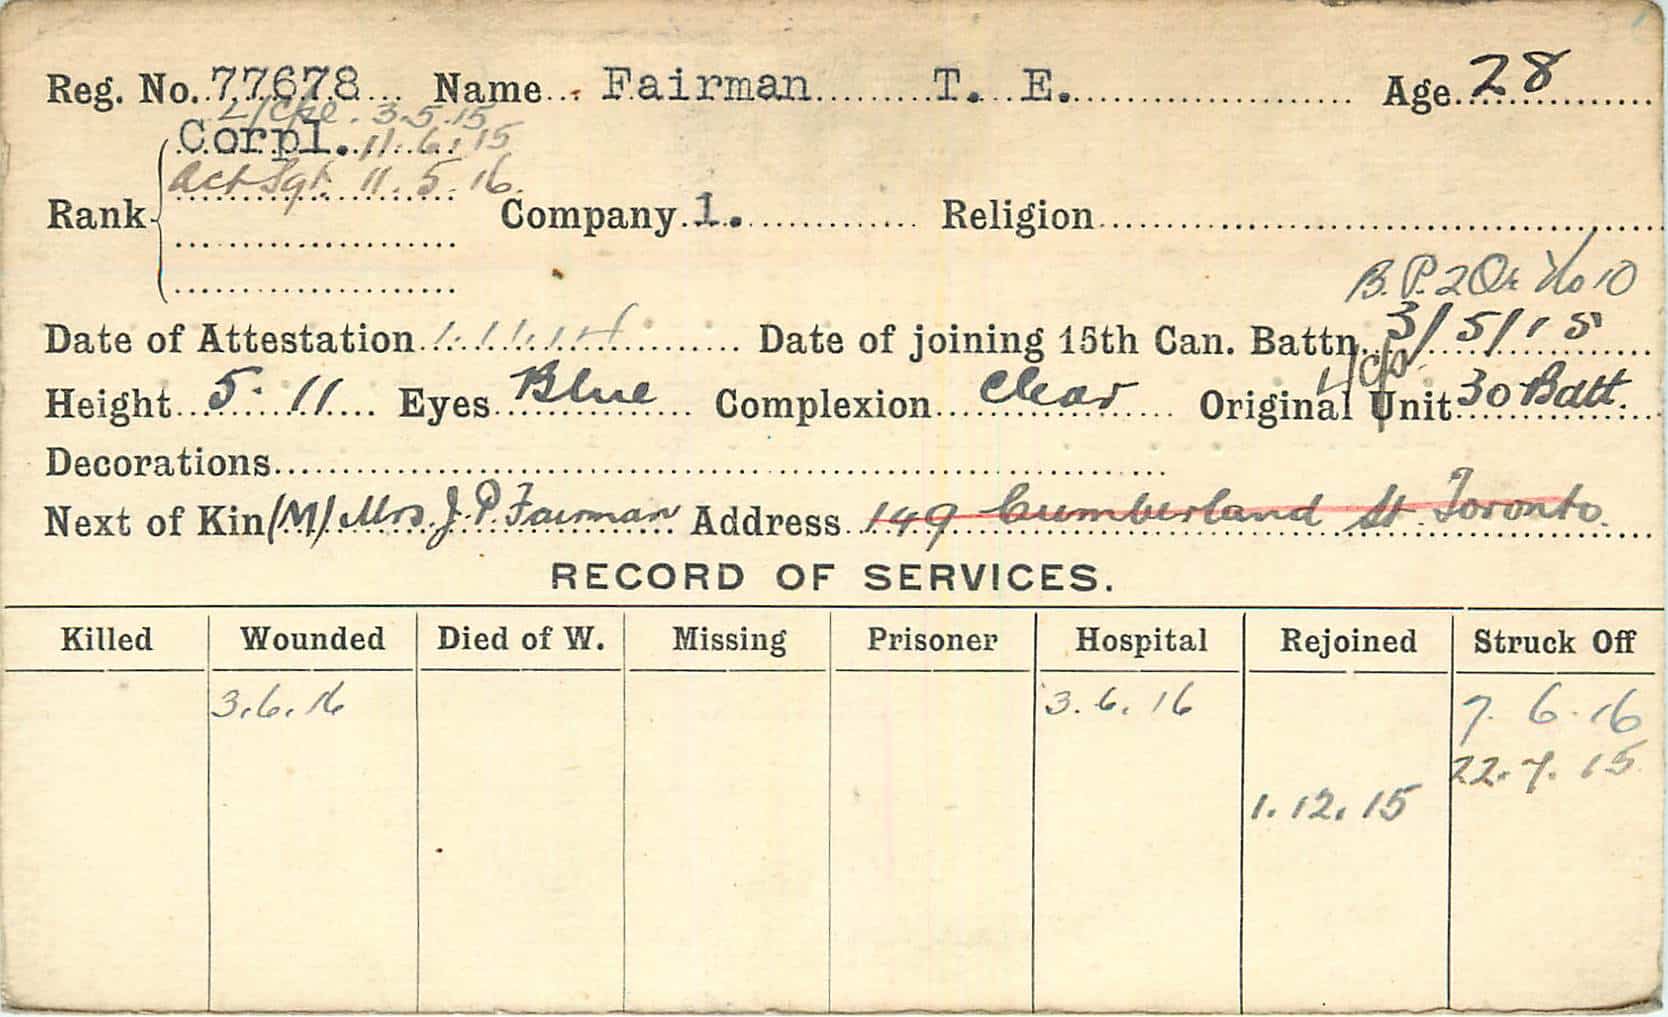 Reg. No. 77678 Name Fairman T. E. Age 28
L/Cpl. 3.5.15
Corpl. 11.6.15
Act Sgt. 11.5.16.
Rank Company 1. Religion
B.P. 2 No 10
Date of Attestation Date of joining 15th Can. Battn. 3/5/15
Height 5.11 Eyes Blue Complexion Clear Original Unit 30 Batt.
Decorations
Next of Kin (M) Mrs. J. P. Fairman Address 149 Cumberland St. Toronto.
RECORD OF SERVICES.
Killed Wounded Died of W. Missing Prisoner Hospital Rejoined Struck Off
3.6.16 3.6.16 7.6.16
22.7.15
1.12.15